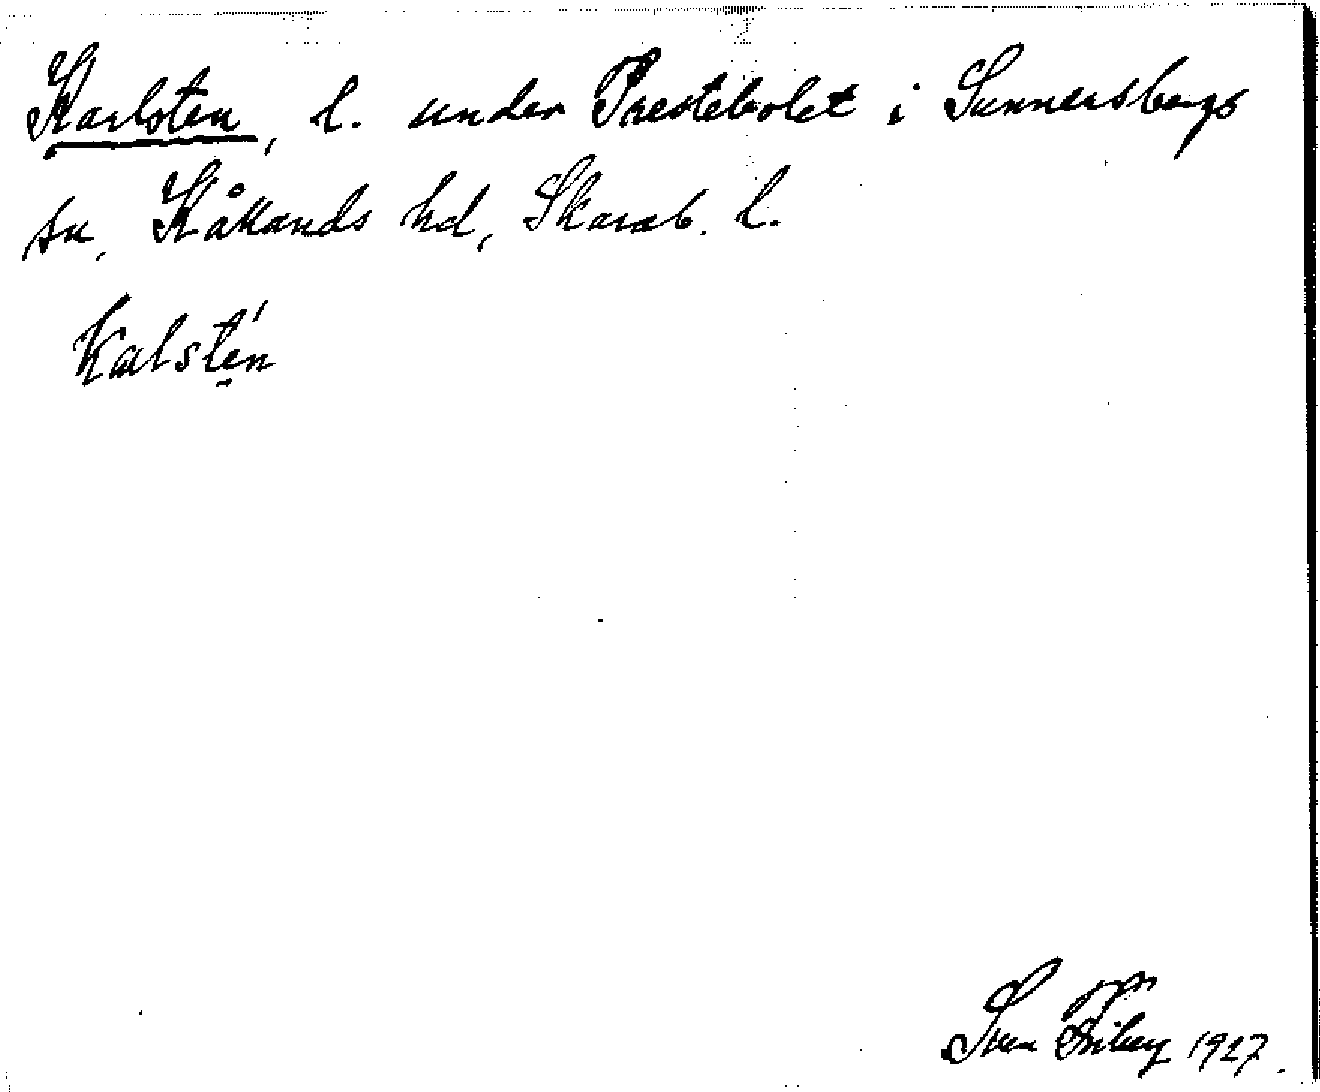 Karlsten, l. under Prestebolet i Sunnersbergs
sn, Kållands hd, Skarab. l.
Kalstén
Sven Friberg 1927.